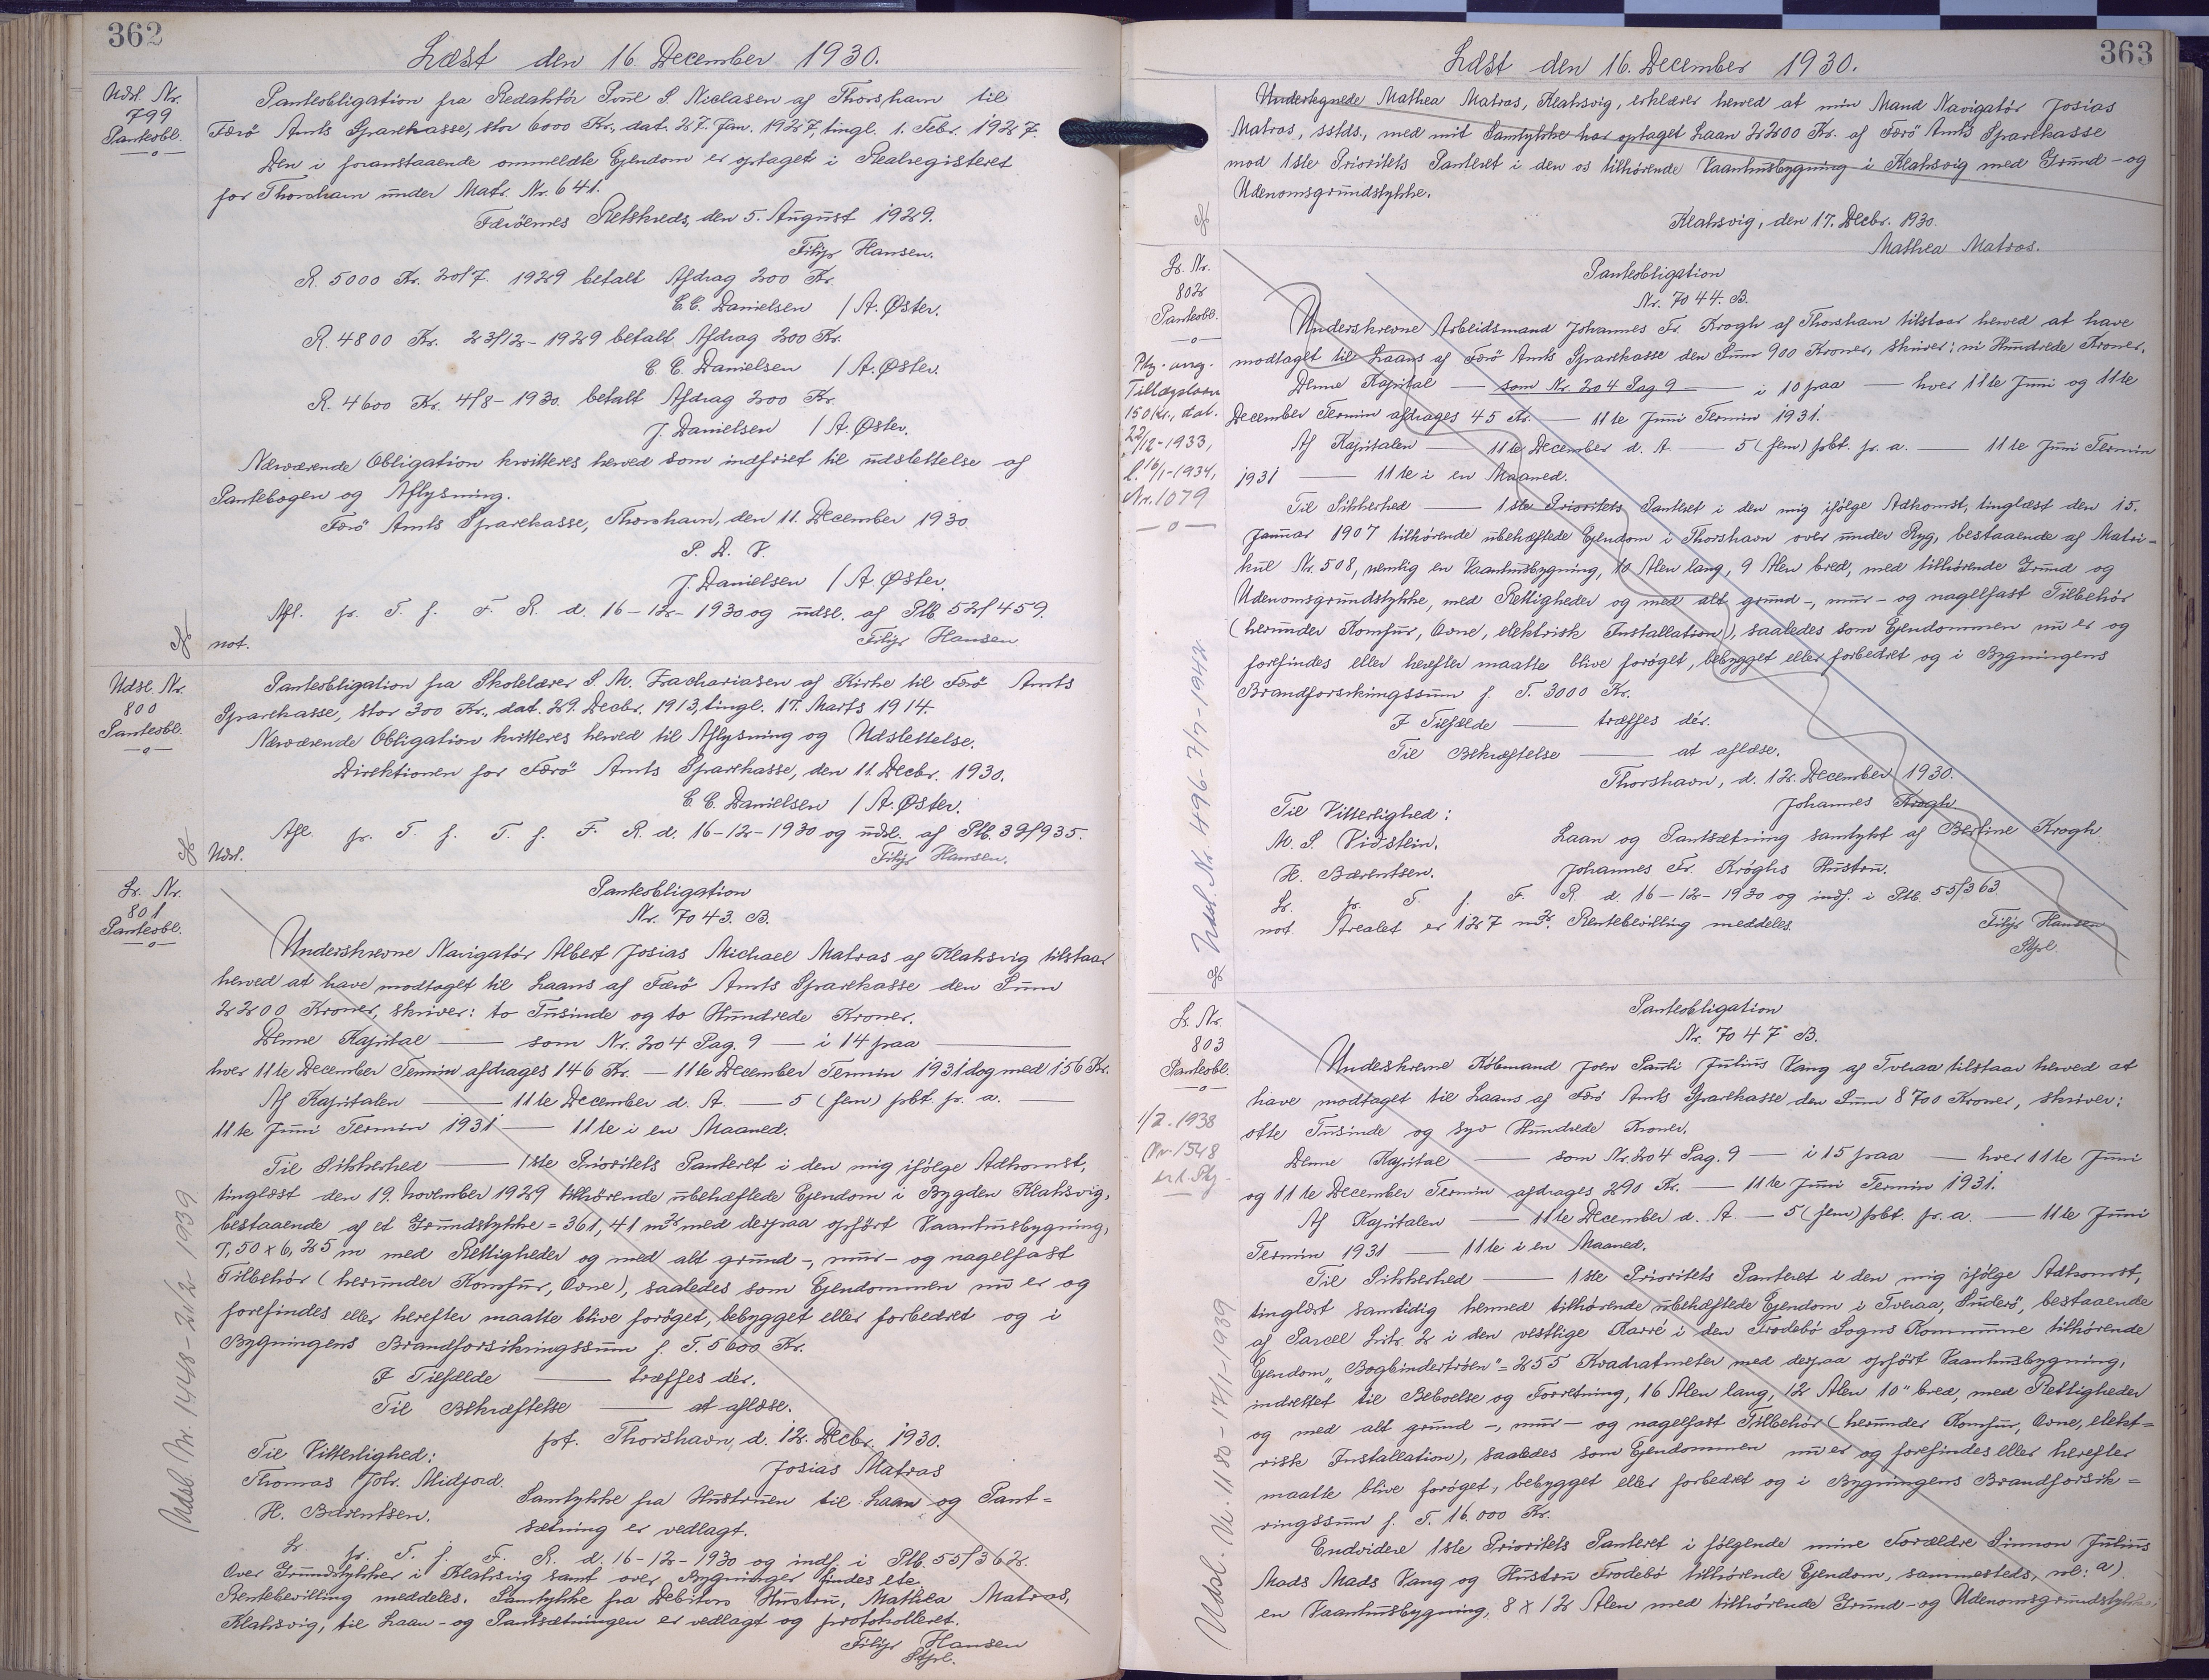 362
Læst den 16 December 1930.
Udsl. Nr.
799
Panteobl.
Panteobligation fra Redaktör Poul S. Niclasen af Thorshavn til
Færö Amts Sparekasse, stor 6000 Kr., dat. 27. Jan. 1927, tingl. 1. Febr. 1927.
Den i foranstaaende ommeldte Ejendom er optaget i Realregisteret
for Thorshavn under Matr. Nr. 641.
Færöernes Retskreds, den 5. August 1929.
Filip Hansen.
R. 5000 Kr. 20/7. 1929 betalt Afdrag 200 Kr.
C.C. Danielsen / A. Øster.
R. 4800 Kr. 23/12-1929 betalt Afdrag 200 Kr.
C. C. Danielsen / A. Øster.
R. 4600 Kr. 4/8-1930. betalt Afdrag 200 Kr.
J. Danielsen / A. Øster.
Nærværende Obligation kvitteres herved som indfriet til udslettelse af
Pantebogen og Aflysning.
Færö Amts Sparekasse, Thorshavn, den 11. December 1930
P. D. V.
J. Danielsen / A. Øster.
Afl. pr. T. f. F. R. d. 16-12-1930 og udsl. af Ptb. 52/459.
not. Filip Hansen
Udsl. Nr.
800
Panteobl.
Panteobligation fra Skolelærer S. M. Zachariasen af Kirke til Færö Amts
Sparekasse, stor 300 Kr., dat. 29. Decbr. 1913, tingl. 17. Marts 1914.
Nærværende Obligation kvitteres herved til Aflysning og Udslettelse.
Direktionen for Færö Amts Sparekasse, den 11. Decbr. 1930.
C. C. Danielsen / A. Øster.
Afl. pr. T. f. T. f. F. R. d. 16-12-1930 og udsl. af Ptb. 39/935.
Udsl. Filip Hansen.
Lr. Nr.
801
Panteobl.
Panteobligation
Nr. 7043. B.
Underskrevne Navigatör Albert Josias Michael Matras af Klaksvig tilstaar
herved at have modtaget til Laans af Færö Amts Sparekasse den Sum
2200 Kroner, skriver: to Tusinde og to Hundrede Kroner.
Denne Kapital — som Nr. 204 Pag. 9 — i 14 paa —
hver 11te December Termin afdrages 146 Kr. — 11te December Termin 1931 dog med 156 Kr.
Af Kapitalen — 11te December d. A. — 5 (fem) pbt. pr. a. —
11te Juni Termin 1931 — 11te i en Maaned.
Til Sikkerhed — 1ste Prioritets Panteret i den mig ifölge Adkomst,
tinglæst den 19. November 1929 tilhörende ubehæftede Ejendom i Bygden Klaksvig,
bestaaende af et Grundstykke = 361,41 m² med derpaa opfört Vaanhusbygning,
7,50 x 6,25 m med Rettigheder og med alt grund-, mur- og nagelfast
Tilbehör (herunder Komfur, Ovne), saaledes som Ejendommen nu er og
forefindes eller herefter maatte blive foröget, bebygget eller forbedret og i
Bygningens Brandforsikringssum f. T. 5600 Kr.
I Tilfælde — træffes dér.
Til Bekræftelse — at aflæse.
pt. Thorshavn, d. 12. Decbr. 1930.
Til Vitterlighed: Josias Matras
Thomas Joh. Midjord. Samtykke fra Hustruen til Laan og Pant=
H. Bærentsen. sætning er vedlagt.
Lr. pr. T. f. F. R. d. 16-12-1930 og indf. i Ptb. 55/362.
Over Grundstykker i Klaksvig samt over Bygninger findes ete.
Rentebevilling meddeles. Samtykke fra Debitors Hustru, Mathea Matras,
Klaksvig, til Laan- og Pantsætningen er vedlagt og protokolleret.
Filip Hansen
Stpl.
Udsl. Nr. 1448 - 21/2 1939
363
Læst den 16. December 1930.
Undertegnede Mathea Matras, Klaksvig, erklærer herved at min Mand Navigatör Josias
Matras, sstds., med mit Samtykke har optaget Laan 2200 Kr. af Færö Amts Sparekasse
mod 1ste Prioritets Panteret i den os tilhörende Vaanhusbygning i Klaksvig med Grund- og
Udenomsgrundstykke.
Klaksvig, den 17. Decbr. 1930.
Mathea Matras.
Lr. Nr.
802
Panteobl.
Ptg. ang.
Tillægslaan
150 Kr., dat.
22/12-1933,
l. 16/1-1934,
Nr. 1079
Panteobligation
Nr. 7044. B.
Underskrevne Arbeidsmand Johannes Fr. Krogh af Thorshavn tilstaar herved at have
modtaget til Laans af Færö Amts Sparekasse den Sum 900 Kroner, skriver: ni Hundrede Kroner.
Denne Kapital — som Nr. 204 Pag. 9 — i 10 paa — hver 11te Juni og 11te
December Termin afdrages 45 Kr. — 11te Juni Termin 1931.
Af Kapitalen — 11te December d. A. — 5 (fem) pbt. pr. a. — 11te Juni Termin
1931 — 11te i en Maaned.
Til Sikkerhed — 1ste Prioritets Panteret i den mig ifölge Adkomst, tinglæst den 15.
Januar 1907 tilhörende ubehæftede Ejendom i Thorshavn over under Ryg, bestaaende af Matri=
kul Nr. 508, nemlig en Vaanhusbygning, 10 Alen lang, 9 Alen bred, med tilhörende Grund og
Udenomsgrundstykke, med Rettigheder og med alt grund-, mur- og nagelfast Tilbehör
(herunder Komfur, Ovne, elektrisk Installation), saaledes som Ejendommen nu er og
forefindes eller herefter maatte blive foröget, bebygget eller forbedret og i Bygningens
Brandforsikringssum f. T. 3000 Kr.
I Tilfælde — træffes dér.
Til Bekræftelse — at aflæse.
Thorshavn, d. 12. December 1930.
Til Vitterlighed: Johannes Krogh.
M. S. Vidstein. Laan og Pantsætning samtykt af Bertine Krogh
H. Bærentsen. Johannes Fr. Kroghs Hustru.
Lr. pr. T. f. F. R. d. 16-12-1930 og indf. i Ptb. 55/363.
not. Arealet er 127 m². Rentebevilling meddeles. Filip Hansen
Stpl.
Udsl. Nr. 496-7/7-1942
Lr. Nr.
803
Panteobl.
1/2. 1938
Nr 1548
Panteobligation
Nr. 7047 B.
Undeskrevne Köbmand Joen Pauli Julius Vang af Tveraa tilstaar herved at
have modtaget til Laans af Færö Amts Sparekasse den Sum 8700 Kroner, skriver:
otte Tusinde og syv Hundrede Kroner.
Denne Kapital — som Nr. 204 Pag. 9 — i 15 paa — hver 11te Juni
og 11te December Termin afdrages 290 Kr. — 11te Juni Termin 1931.
Af Kapitalen — 11te December d. A. — 5 (fem) pbt. pr. a. — 11te Juni
Termin 1931 — 11te i en Maaned.
Til Sikkerhed — 1ste Prioritets Panteret i den mig ifölge Adkomst,
tinglæst samtidig hermed tilhörende ubehæftede Ejendom i Tveraa, Suderö, bestaaende
af Parcel Litr. 2 i den vestlige Karré i den Frodebö Sogns Kommune tilhörende
Ejendom „Bogbindertröen" = 255 Kvadratmeter med derpaa opfört Vaanhusbygning,
indrettet til Beboelse og Forretning, 16 Alen lang, 12 Alen 10" bred, med Rettigheder
og med alt grund-, mur- og nagelfast Tilbehör (herunder Komfur, Ovne, elekt=
risk Installation), saaledes som Ejendommen nu er og forefindes eller herefter
maatte blive foröget, bebygget eller forbedret og i Bygningens Brandforsik=
ringssum f. T. 16.000 Kr.
Endvidere 1ste Prioritets Panteret i fölgende mine Forældre Simon Julius
Mads Mads Vang og Hustru Frodebö tilhörende Ejendom, sammesteds, nl: a)
en Vaanhusbygning, 8 x 12 Alen med tilhörende Grund- og Udenomsgrundstykke,
Udsl. Nr. 1180-17/1-1939